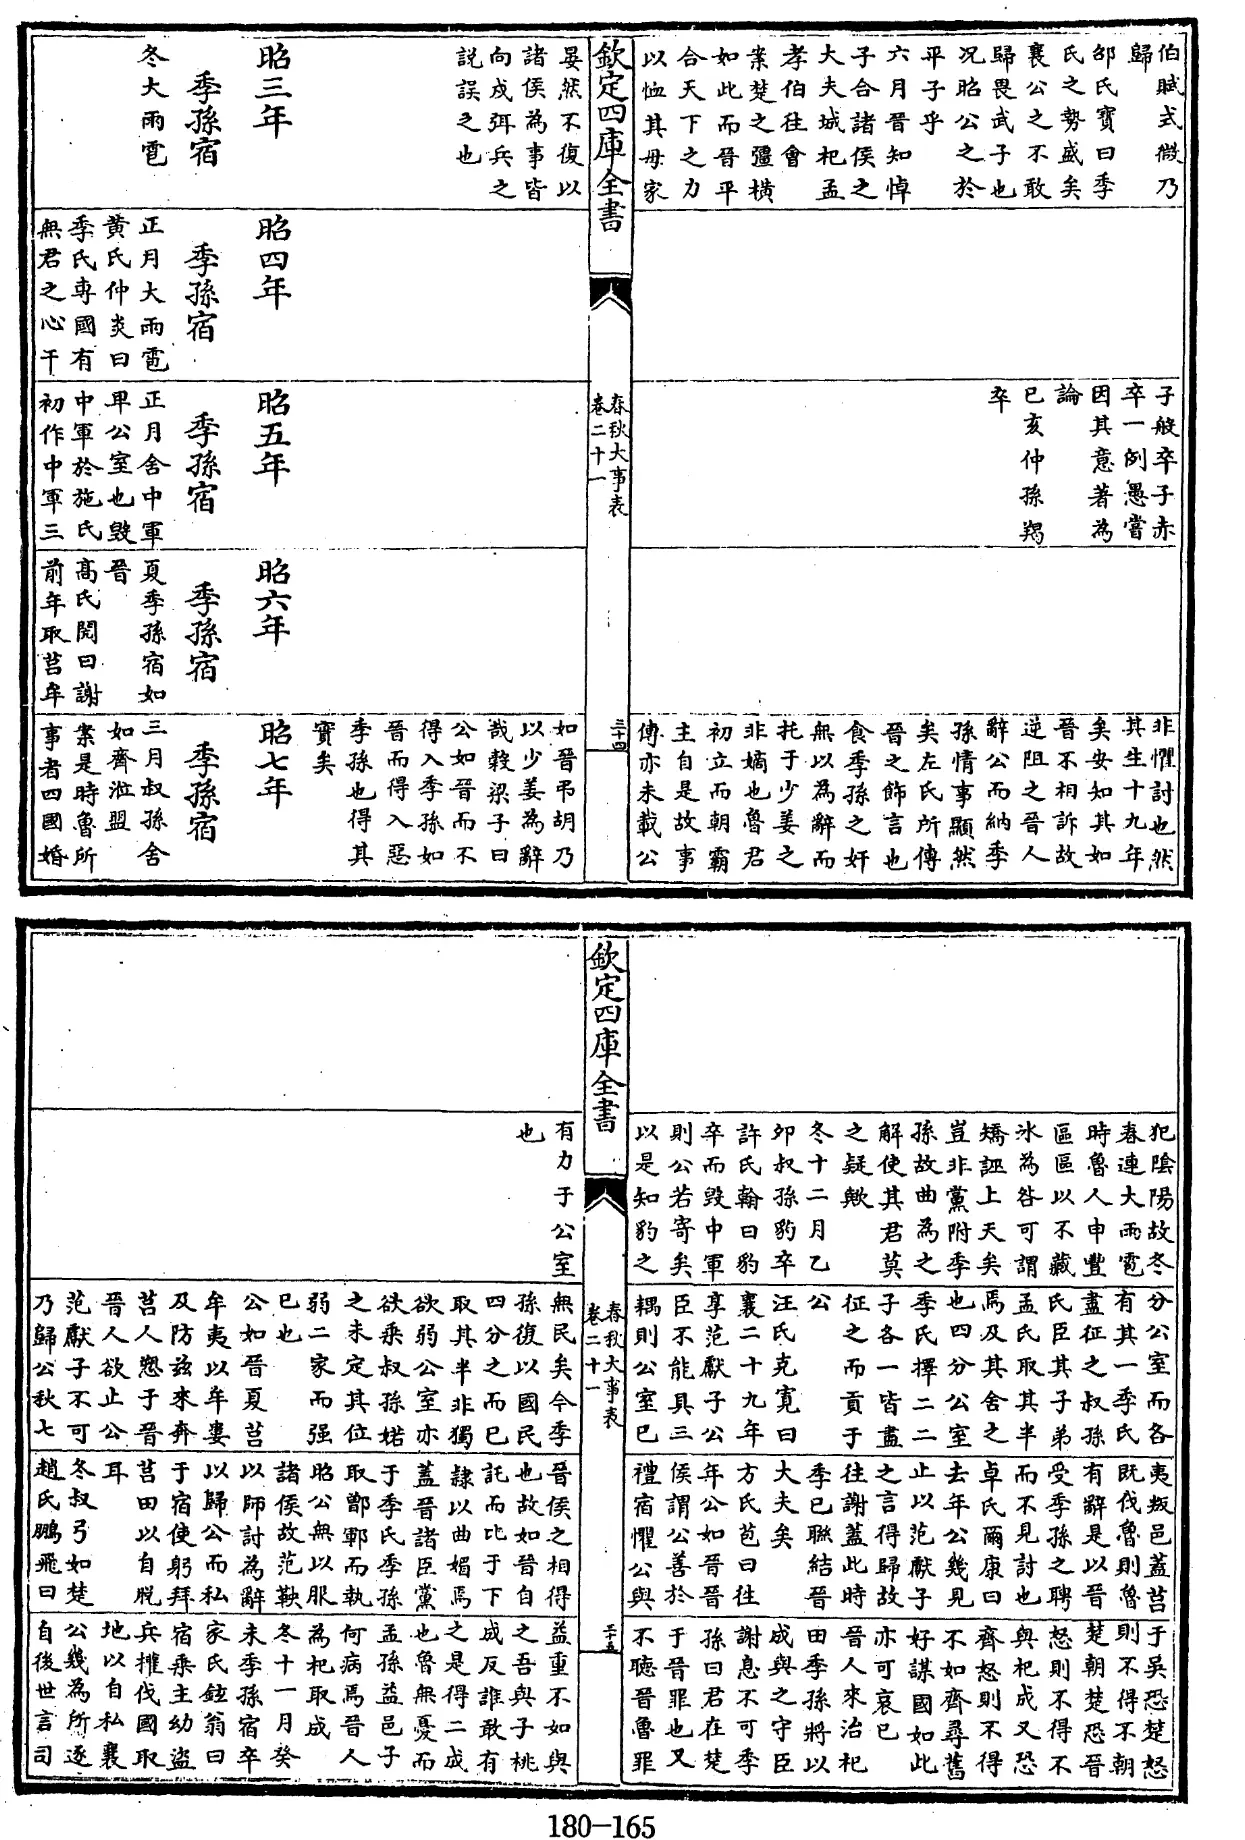 伯賦式微乃
歸
邵氏寶曰季
氏之勢盛矣
襄公之不敢
歸畏武子也
况昭公之於
平子乎
六月晉知悼
子合諸侯之
大夫城杞孟
孝伯往會
案楚之彊橫
如此而晉平
合天下之力
以恤其母家
子般卒子赤
卒一例愚嘗
因其意著為
論
已亥仲孫羯
卒
非懼討也然
其生十九年
矣安知其如
晉不相訴故
逆阻之晉人
辭公而納季
孫情事顯然
矣左氏所傳
晉之飾言也
食季孫之奸
無以為辭而
托于少姜之
非嫡也魯君
初立而朝霸
主自是故事
傳亦未載公
欽定四庫全書
春秋大事表
卷二十一
三十四
晏然不復以
諸侯為事皆
向戍弭兵之
説誤之也
昭三年
季孫宿
冬大雨雹
昭四年
季孫宿
正月大雨雹
黄氏仲炎曰
季氏專國有
無君之心干
昭五年
季孫宿
正月舍中軍
卑公室也毁
中軍於施氏
初作中軍三
昭六年
季孫宿
夏季孫宿如
晉
高氏閌曰謝
前年取莒牟
如晉弔胡乃
以少姜為辭
哉穀梁子曰
公如晉而不
得入季孫如
晉而得入惡
季孫也得其
實矣
昭七年
季孫宿
三月叔孫舍
如齊涖盟
案是時魯所
事者四國婚
犯陰陽故冬
春連大雨雹
時魯人申豐
區區以不藏
氷為咎可謂
矯誣上天矣
豈非黨附季
孫故曲為之
解使其君莫
之疑歟
冬十二月乙
卯叔孫豹卒
許氏翰曰豹
卒而毀中軍
則公若寄矣
以是知豹之
分公室而各
有其一季氏
盡征之叔孫
氏臣其子弟
孟氏取其半
焉及其舍之
也四分公室
季氏擇二二
子各一皆盡
征之而貢于
公
汪氏克寛曰
襄二十九年
享范獻子公
臣不能具三
耦則公室已
夷叛邑蓋莒
既伐魯則魯
有辭是以晉
受季孫之聘
而不見討也
卓氏爾康曰
去年公幾見
止以范獻子
之言得歸故
往謝蓋此時
季已聯結晉
大夫矣
方氏苞曰往
年公如晉晉
侯謂公善於
禮宿懼公與
于吳恐楚怒
則不得不朝
楚朝楚恐晉
怒則不得不
與杞成又恐
齊怒則不得
不如齊尋舊
好謀國如此
亦可哀已
晉人來治杞
田季孫將以
成與之守臣
謝息不可季
孫曰君在楚
于晉罪也又
不聽晉魯罪
欽定四庫全書
春秋大事表
卷二十一
三十五
有力于公室
也
無民矣今季
孫復以國民
四分之而已
取其半非獨
欲弱公室亦
欲乘叔孫婼
之未定其位
弱二家而强
已也
公如晉夏莒
牟夷以牟婁
及防茲來奔
莒人愬于晉
晉人欲止公
范獻子不可
乃歸公秋七
晉侯之相得
也故如晉自
託而比于下
隷以曲媚焉
蓋晉諸臣黨
于季氏季孫
取鄫鄆而執
昭公無以服
諸侯故范鞅
以師討為辭
以歸公而私
于宿使躬拜
莒田以自脱
耳
冬叔弓如楚
趙氏鵬飛曰
益重不如與
之吾與子桃
成反誰敢有
之是得二成
也魯無憂而
孟孫益邑子
何病焉晉人
為杞取成
冬十一月癸
未季孫宿卒
家氏鉉翁曰
宿乘主幼盜
兵權伐國取
地以自私襄
公幾為所逐
自後世言司
180-165